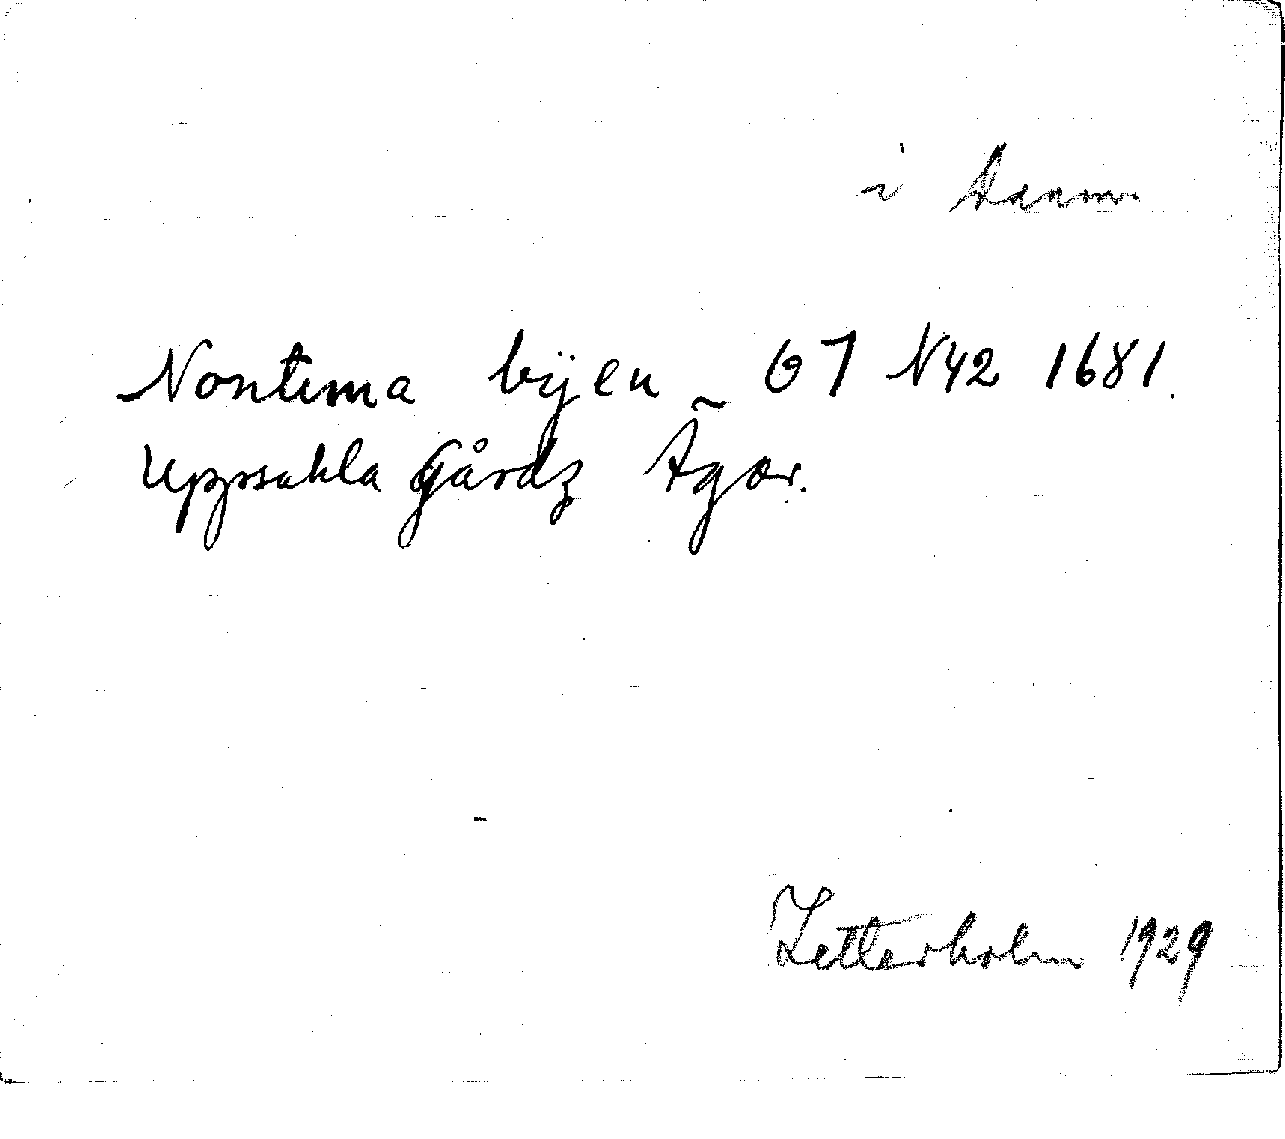 i
Nontuna bÿen ~ G7 N42 1681.
Uppsahla Gårdz Ägor.
Zetterholm 1929